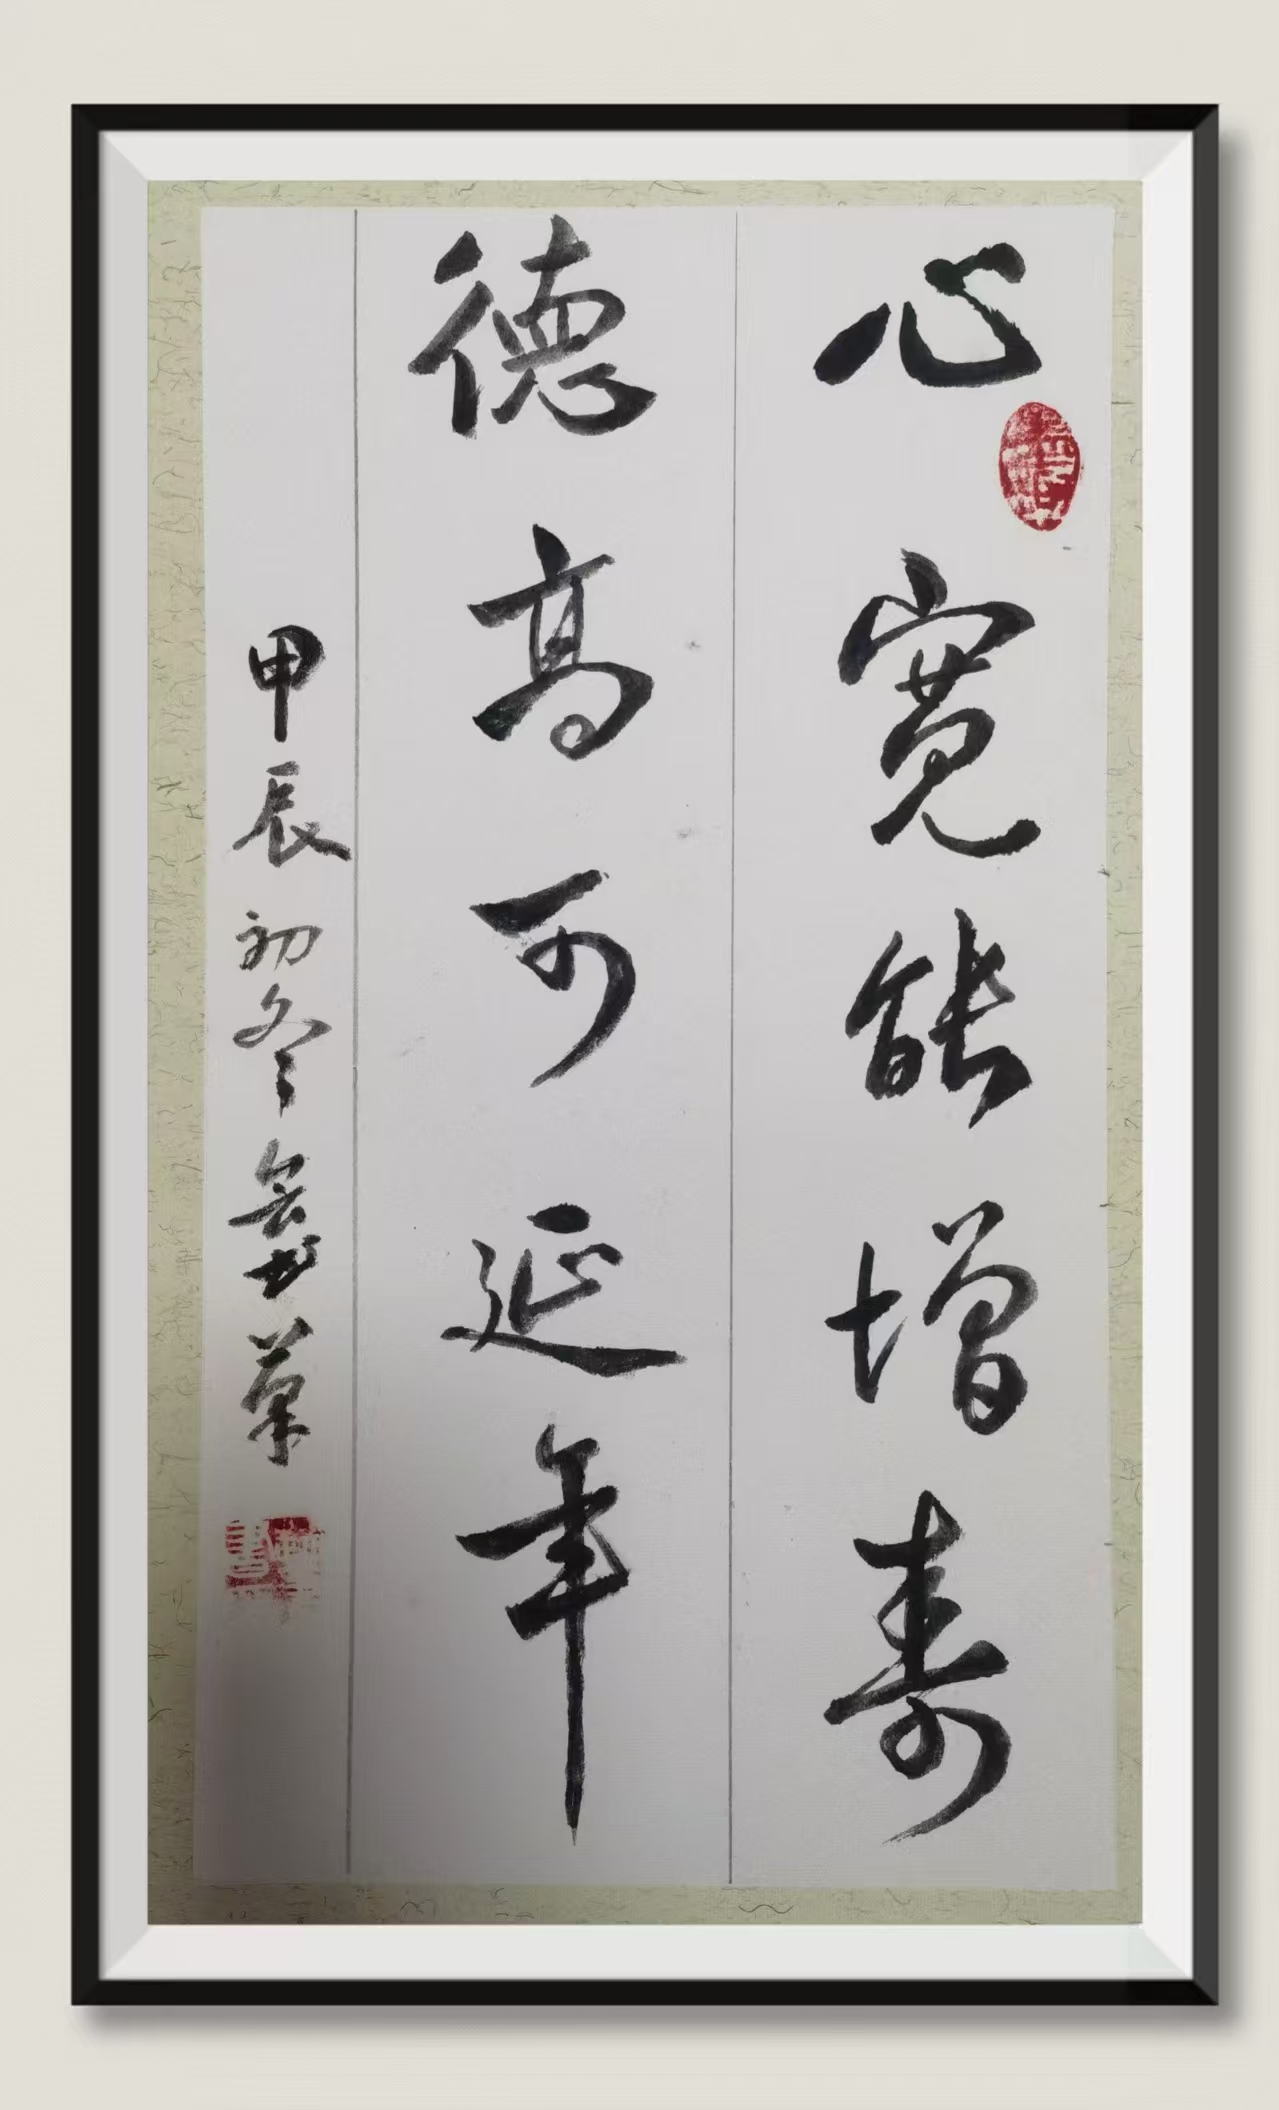 心寬能增壽
德高可延年
甲辰初冬